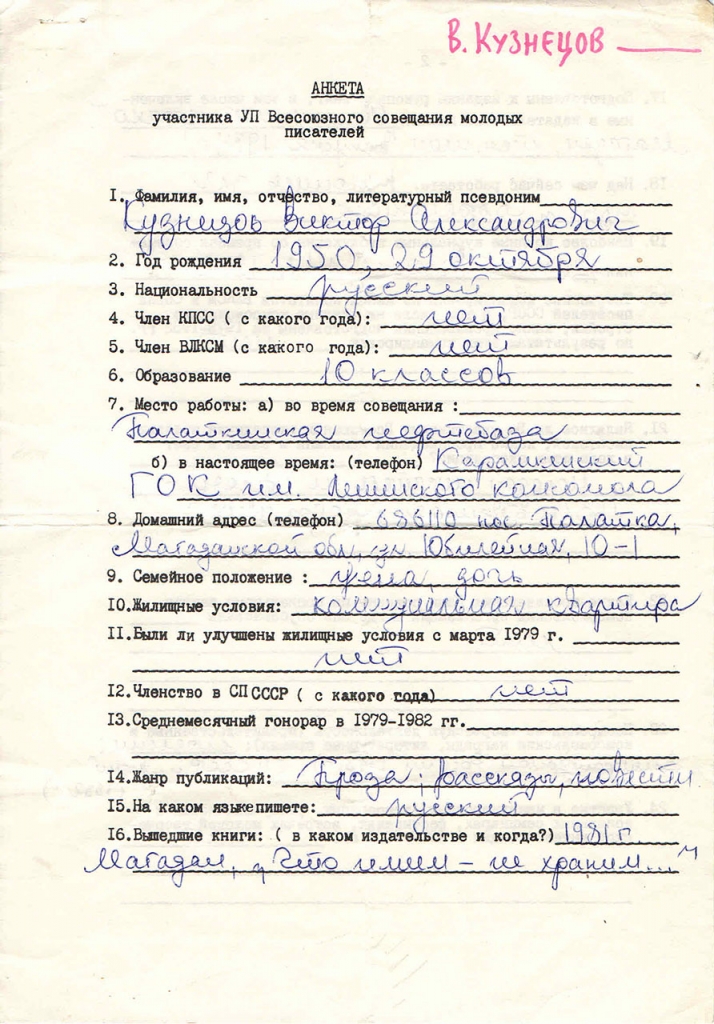 В. Кузнецов
АНКЕТА
участника УП Всесоюзного совещания молодых
писателей
I. Фамилия, имя, отчество, литературный псевдоним
Кузнецов Виктор Александрович
2. Год рождения 1950, 29 октября
3. Национальность русский
4. Член КПСС ( с какого года): нет
5. Член ВЛКСМ (с какого года): нет
6. Образование 10 классов
7. Место работы: а) во время совещания :
Палаткинская нефтебаза
б) в настоящее время: (телефон) Карамкенский
ГОК им. Ленинского комсомола
8. Домашний адрес (телефон) 686110 пос. Палатка,
Магаданской обл, ул. Юбилейная, 10-1
9. Семейное положение : жена, дочь
IO.Жилищные условия: коммунальная квартира
II.Были ли улучшены жилищные условия с марта 1979 г.
нет
I2.Членство в СП СССР ( с какого года) нет
I3.Среднемесячный гонорар в 1979-1982 гг.
I4.Жанр публикаций: Проза; рассказы, повести
I5.На каком языке пишете: русский
I6.Вышедшие книги: ( в каком издательстве и когда?) 1981 г.
Магадан, „Что имеем - не храним..."